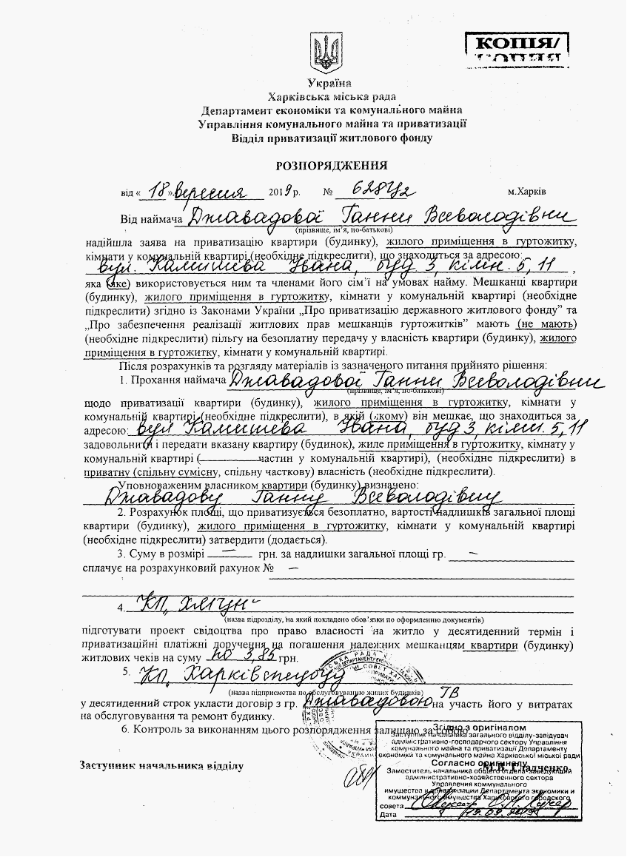 КОПІЯ/
Україна
Харківська міська рада
Департамент економіки та комунального майна
Управління комунального майна та приватизації
Відділ приватизації житлового фонду
РОЗПОРЯДЖЕННЯ
від « 18 » вересня 2019 р. № м.Харків
Від наймача Джавадової Ганни Всеволодівни
(прізвище, ім'я, по-батькові)
надійшла заява на приватизацію квартири (будинку), жилого приміщення в гуртожитку,
кімнати у комунальній квартирі (необхідне підкреслити), що знаходиться за адресою:
вул. Камишева Івана, буд 3, кімн. 5, 11 ,
яка (яке) використовується ним та членами його сім'ї на умовах найму. Мешканці квартири
(будинку), жилого приміщення в гуртожитку, кімнати у комунальній квартирі (необхідне
підкреслити) згідно із Законами України „Про приватизацію державного житлового фонду" та
„Про забезпечення реалізації житлових прав мешканців гуртожитків" мають (не мають)
(необхідне підкреслити) пільгу на безоплатну передачу у власність квартири (будинку), жилого
приміщення в гуртожитку, кімнати у комунальній квартирі.
Після розрахунків та розгляду матеріалів із зазначеного питання прийнято рішення:
1. Прохання наймача Джавадової Ганни Всеволодівни
(прізвище, ім'я, по-батькові)
щодо приватизації квартири (будинку), жилого приміщення в гуртожитку, кімнати у
комунальній квартирі (необхідне підкреслити), в якій (якому) він мешкає, що знаходиться за
адресою: вул Камишева Івана, буд 3, кімн. 5, 11
задовольнити і передати вказану квартиру (будинок), жиле приміщення в гуртожитку, кімнату у
комунальній квартирі (— частин у комунальній квартирі), (необхідне підкреслити) в
приватну (спільну сумісну, спільну часткову) власність (необхідне підкреслити).
Уповноваженим власником квартири (будинку) визначено:
Джавадову Ганну Всеволодівну
2. Розрахунок площі, що приватизується безоплатно, вартості надлишків загальної площі
квартири (будинку), жилого приміщення в гуртожитку, кімнати у комунальній квартирі
(необхідне підкреслити) затвердити (додається).
3. Суму в розмірі — грн. за надлишки загальної площі гр. —
сплачує на розрахунковий рахунок № —
4. КП
(назва підрозділу, на який покладено обов'язки по оформленню документів)
підготувати проект свідоцтва про право власності на житло у десятиденний термін і
приватизаційні платіжні доручення на погашення належних мешканцям квартири (будинку)
житлових чеків на суму по 3,85 грн.
5. КП
(назва підприємства по обслуговуванню жилих будинків)
у десятиденний строк укласти договір з гр. Джавадовою ГВ на участь його у витратах
на обслуговування та ремонт будинку.
6. Контроль за виконанням цього розпорядження залишаю за собою.
Заступник начальника відділу
Згідно з оригіналом
Заступник начальника загального відділу-завідувач
адміністративно-господарчого сектору Управління
комунального майна та приватизації Департаменту
економіки та комунального майна Харківської міської ради
Согласно оригиналу
Заместитель начальника общего отдела-заведующий
административно-хозяйственного сектора
Управления коммунального
имущества и приватизации Департамента экономики и
коммунального имущества Харьковского городского
совета
Дата